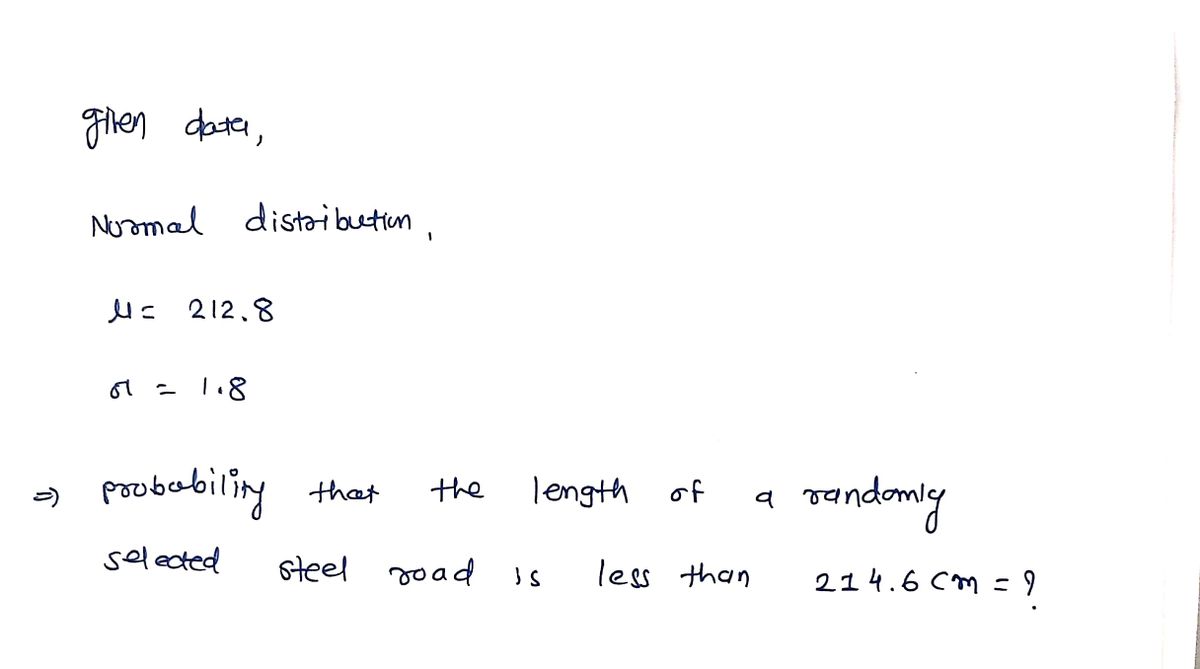 given data,
Normal distribution,
μ = 212.8
σ = 1.8
⇒ probability that the length of a randomly
selected steel road is less than 214.6 cm = ?